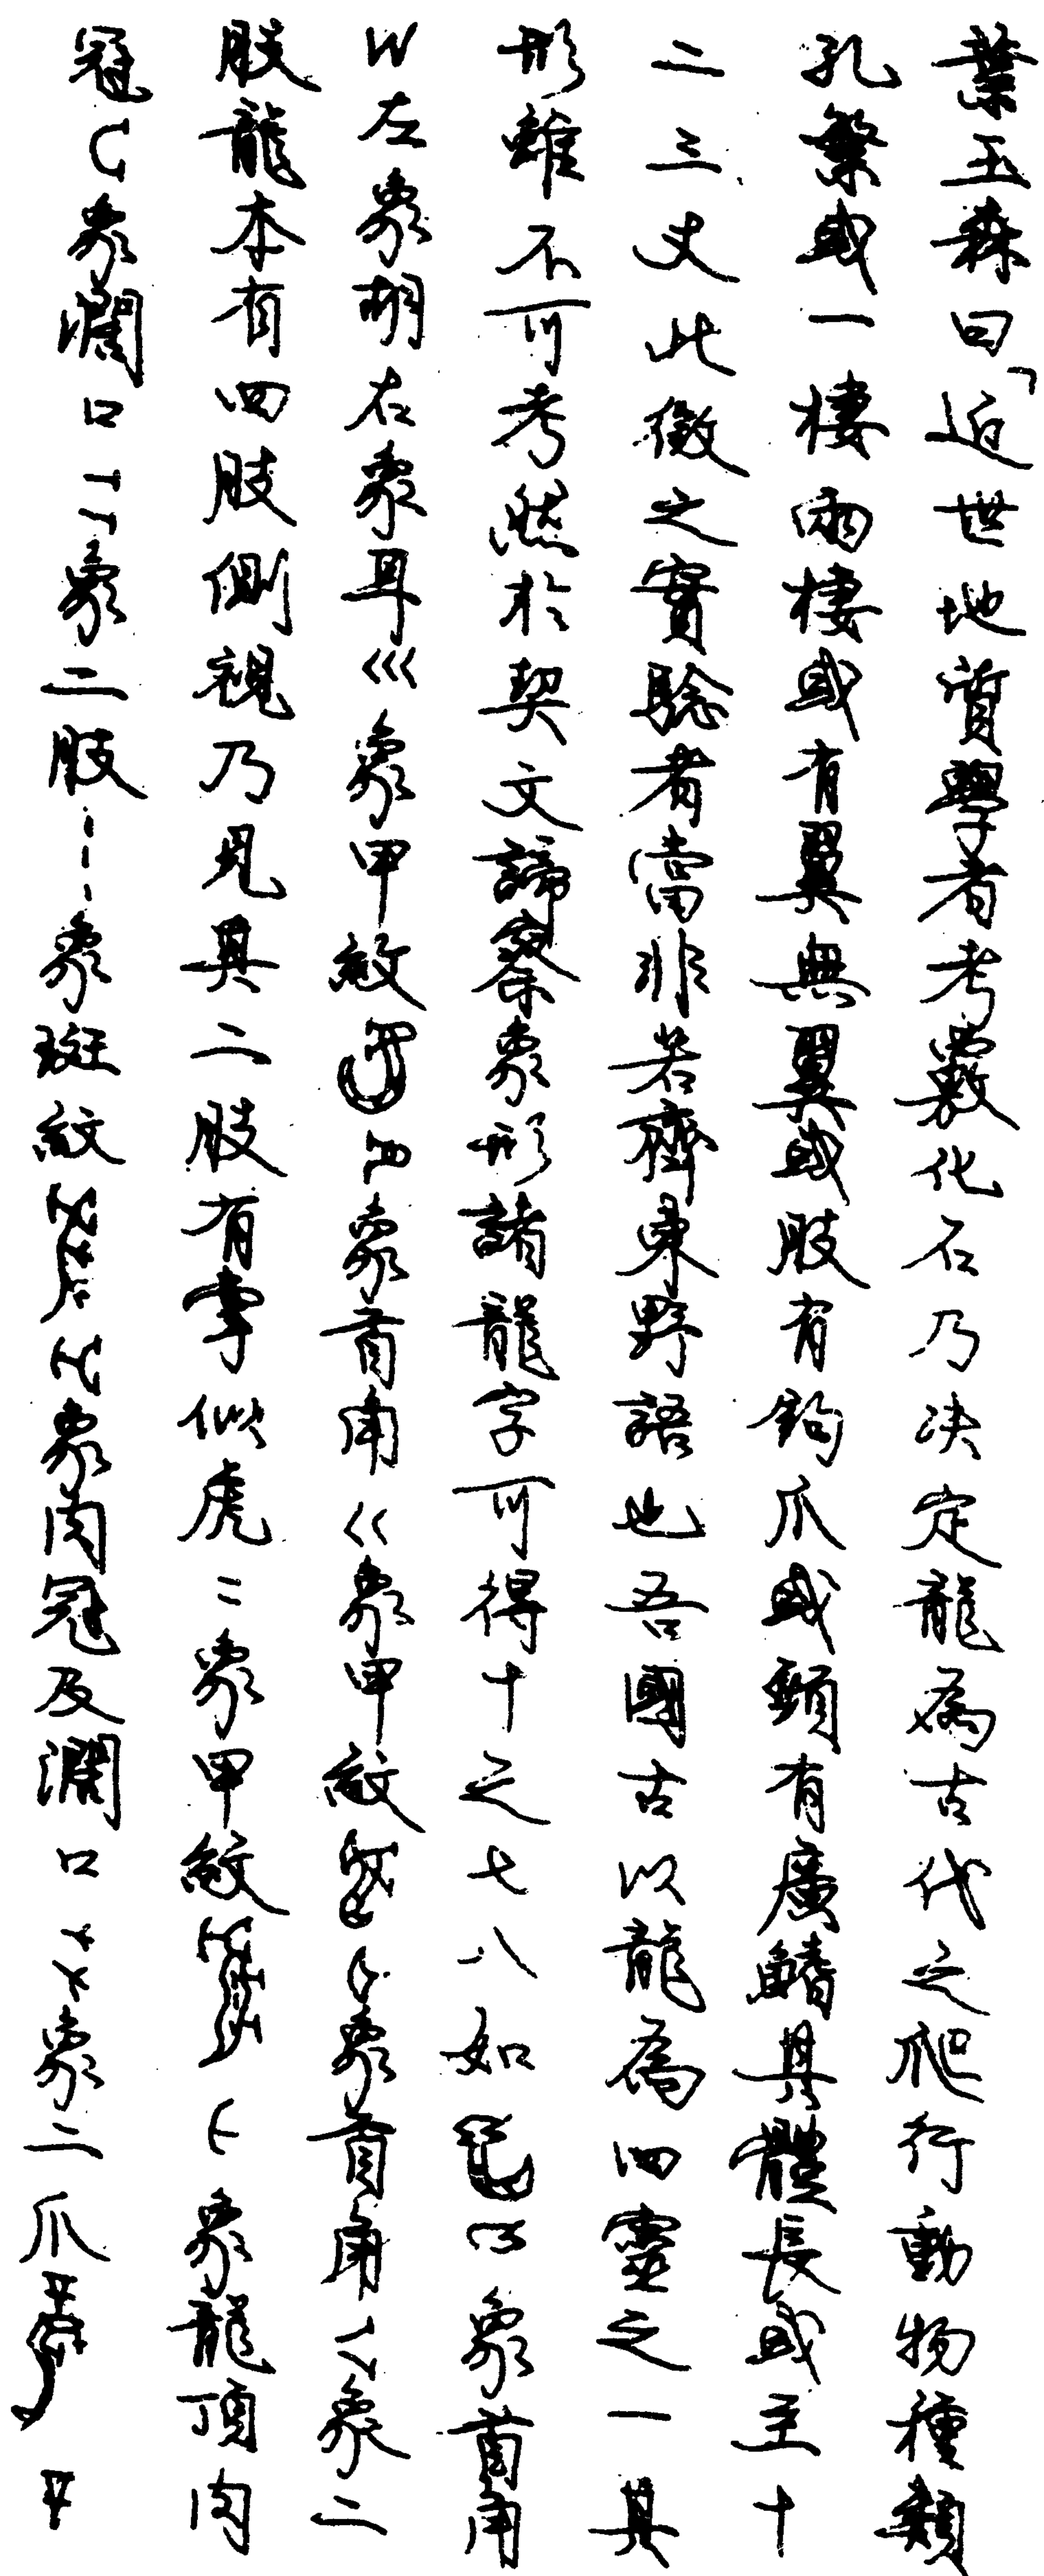 葉玉森曰「近世地質學者考覈化石乃決定龍為古代之爬行動物種類
孔繁或一棲兩棲或有翼無翼或肢有鉤爪或頸有廣鰭其體長或至十
二三丈此徵之實驗者當非若齊東野語也吾國古以龍為四靈之一其
形雖不可考然於契文諦察象形諸龍字可得十之七八如象首角
左象胡右象耳巛象甲紋象首角巜象甲紋象首角象二
肢龍本有四肢側視乃見其二肢有掌似虎象甲紋象龍頂肉
冠象濶口象二肢象斑紋象肉冠及濶口象二爪